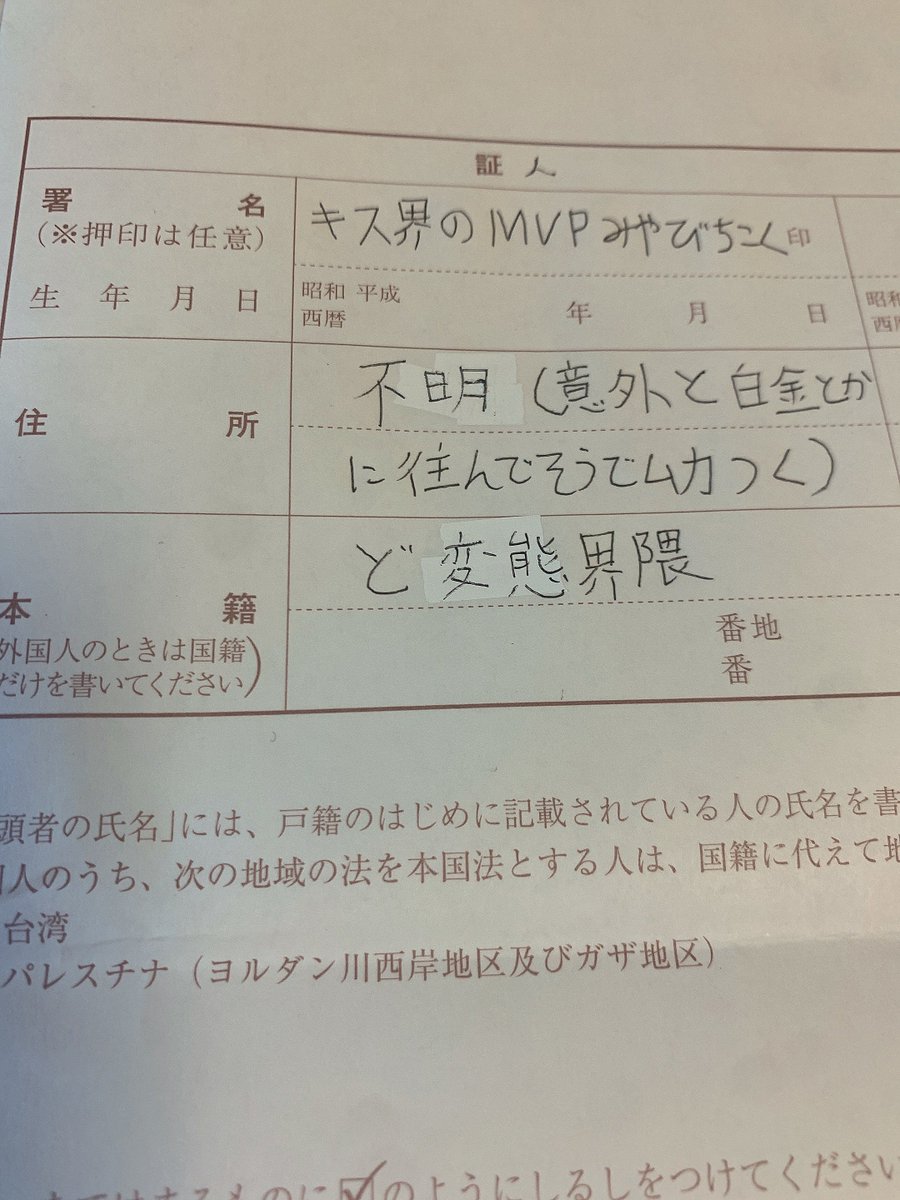 証人
署名
(※押印は任意)
キス界のMVPみやびちこく印
生年月日
昭和 平成
西暦
年 月 日
昭和
西暦
住所
不明(意外と白金とか
に住んでそうでムカつく)
本籍
外国人のときは国籍
だけを書いてください)
ど変態界隈
番地
番
頭者の氏名」には、戸籍のはじめに記載されている人の氏名を書
人のうち、次の地域の法を本国法とする人は、国籍に代えて地
台湾
パレスチナ(ヨルダン川西岸地区及びガザ地区)
あてはまるものに☑のようにしるしをつけてください